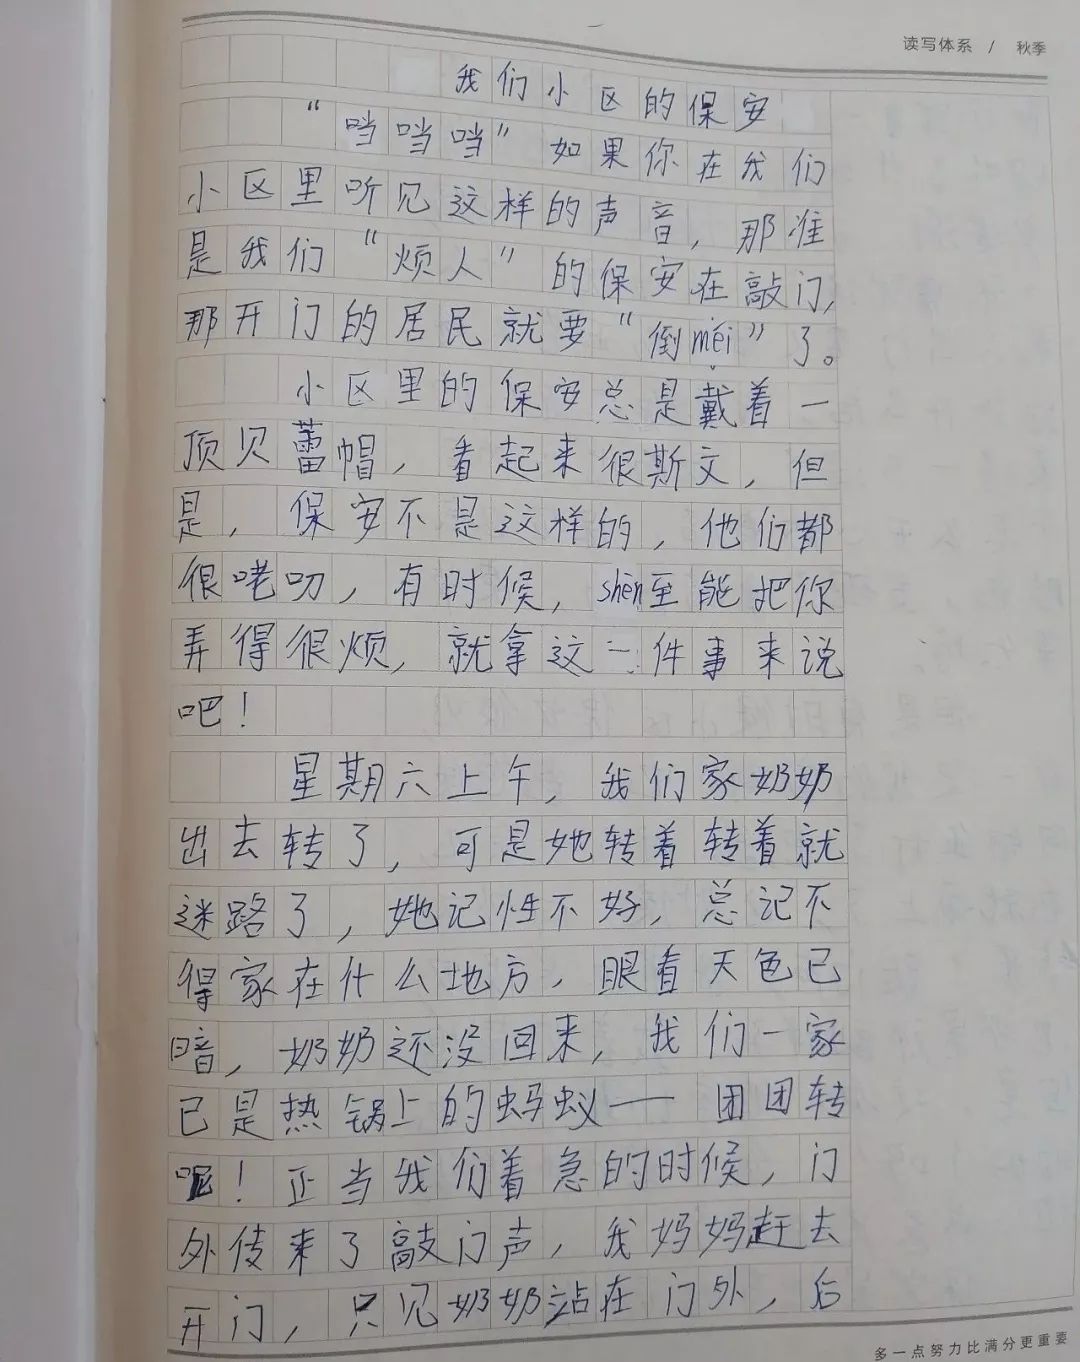 读写体系 / 秋季
我们小区的保安
“当当当”如果你在我们
小区里听见这样的声音，那准
是我们“烦人”的保安在敲门，
那开门的居民就要“倒méi”了。
小区里的保安总是戴着一
顶贝蕾帽，看起来很斯文，但
是，保安不是这样的，他们都
很咾叨，有时候，shèn至能把你
弄得很烦，就拿这一件事来说
吧！
星期六上午，我们家奶奶
出去转了，可是她转着转着就
迷路了，她记性不好，总记不
得家在什么地方，眼看天色已
暗，奶奶还没回来，我们一家
已是热锅上的蚂蚁——团团转
呢！正当我们着急的时候，门
外传来了敲门声，我妈妈赶去
开门，只见奶奶站在门外，后
多一点努力比满分更重要